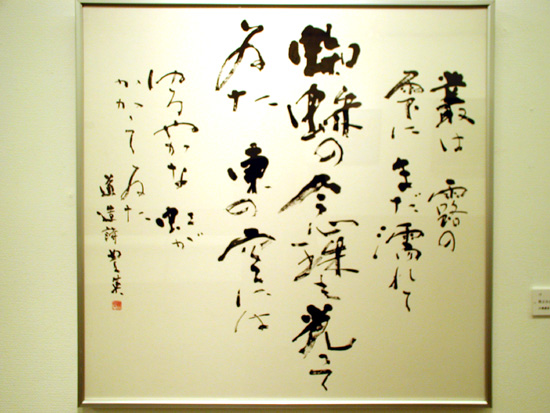 叢は 露の
雫に まだ 濡れて
蜘蛛の念珠も光って
ゐた 東の空には
ゆるやかな 虹が
かかって ゐた
道造詩